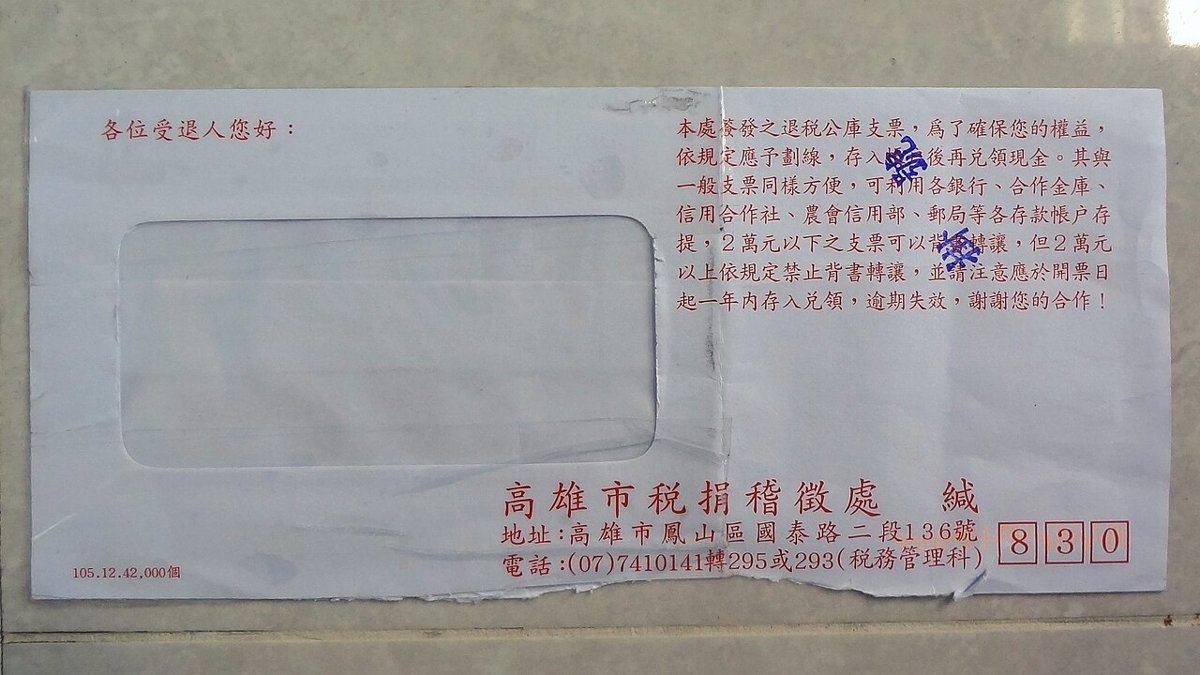 各位受退人您好：
本處簽發之退稅公庫支票，為了確保您的權益，
依規定應予劃線，存入 後再兌領現金。其與
一般支票同樣方便，可利用各銀行、合作金庫、
信用合作社、農會信用部、郵局等各存款帳戶存
提，２萬元以下之支票可以背書轉讓，但２萬元
以上依規定禁止背書轉讓，並請注意應於開票日
起一年內存入兌領，逾期失效，謝謝您的合作！
高雄市稅捐稽徵處 緘
地址:高雄市鳳山區國泰路二段136號
830
電話:(07)7410141轉295或293(稅務管理科)
105.12.42,000個